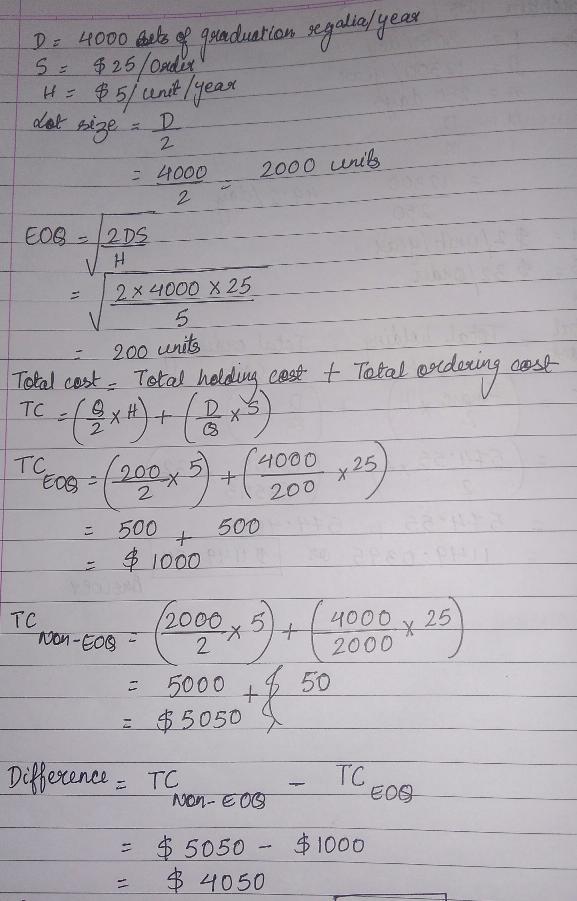 D = 4000 sets of graduation regalia/year
S = $25/Order
H = $5/unit/year
Lot size = D/2
= 4000/2 = 2000 units
EOQ = √(2DS/H)
= √(2×4000×25/5)
= 200 units
Total cost = Total holding cost + Total ordering cost
TC = (Q/2 × H) + (D/Q × S)
TC EOQ = (200/2 × 5) + (4000/200 × 25)
= 500 + 500
= $1000
TC Non-EOQ = (2000/2 × 5) + (4000/2000 × 25)
= 5000 + 50
= $5050
Difference = TC Non-EOQ - TC EOQ
= $5050 - $1000
= $4050